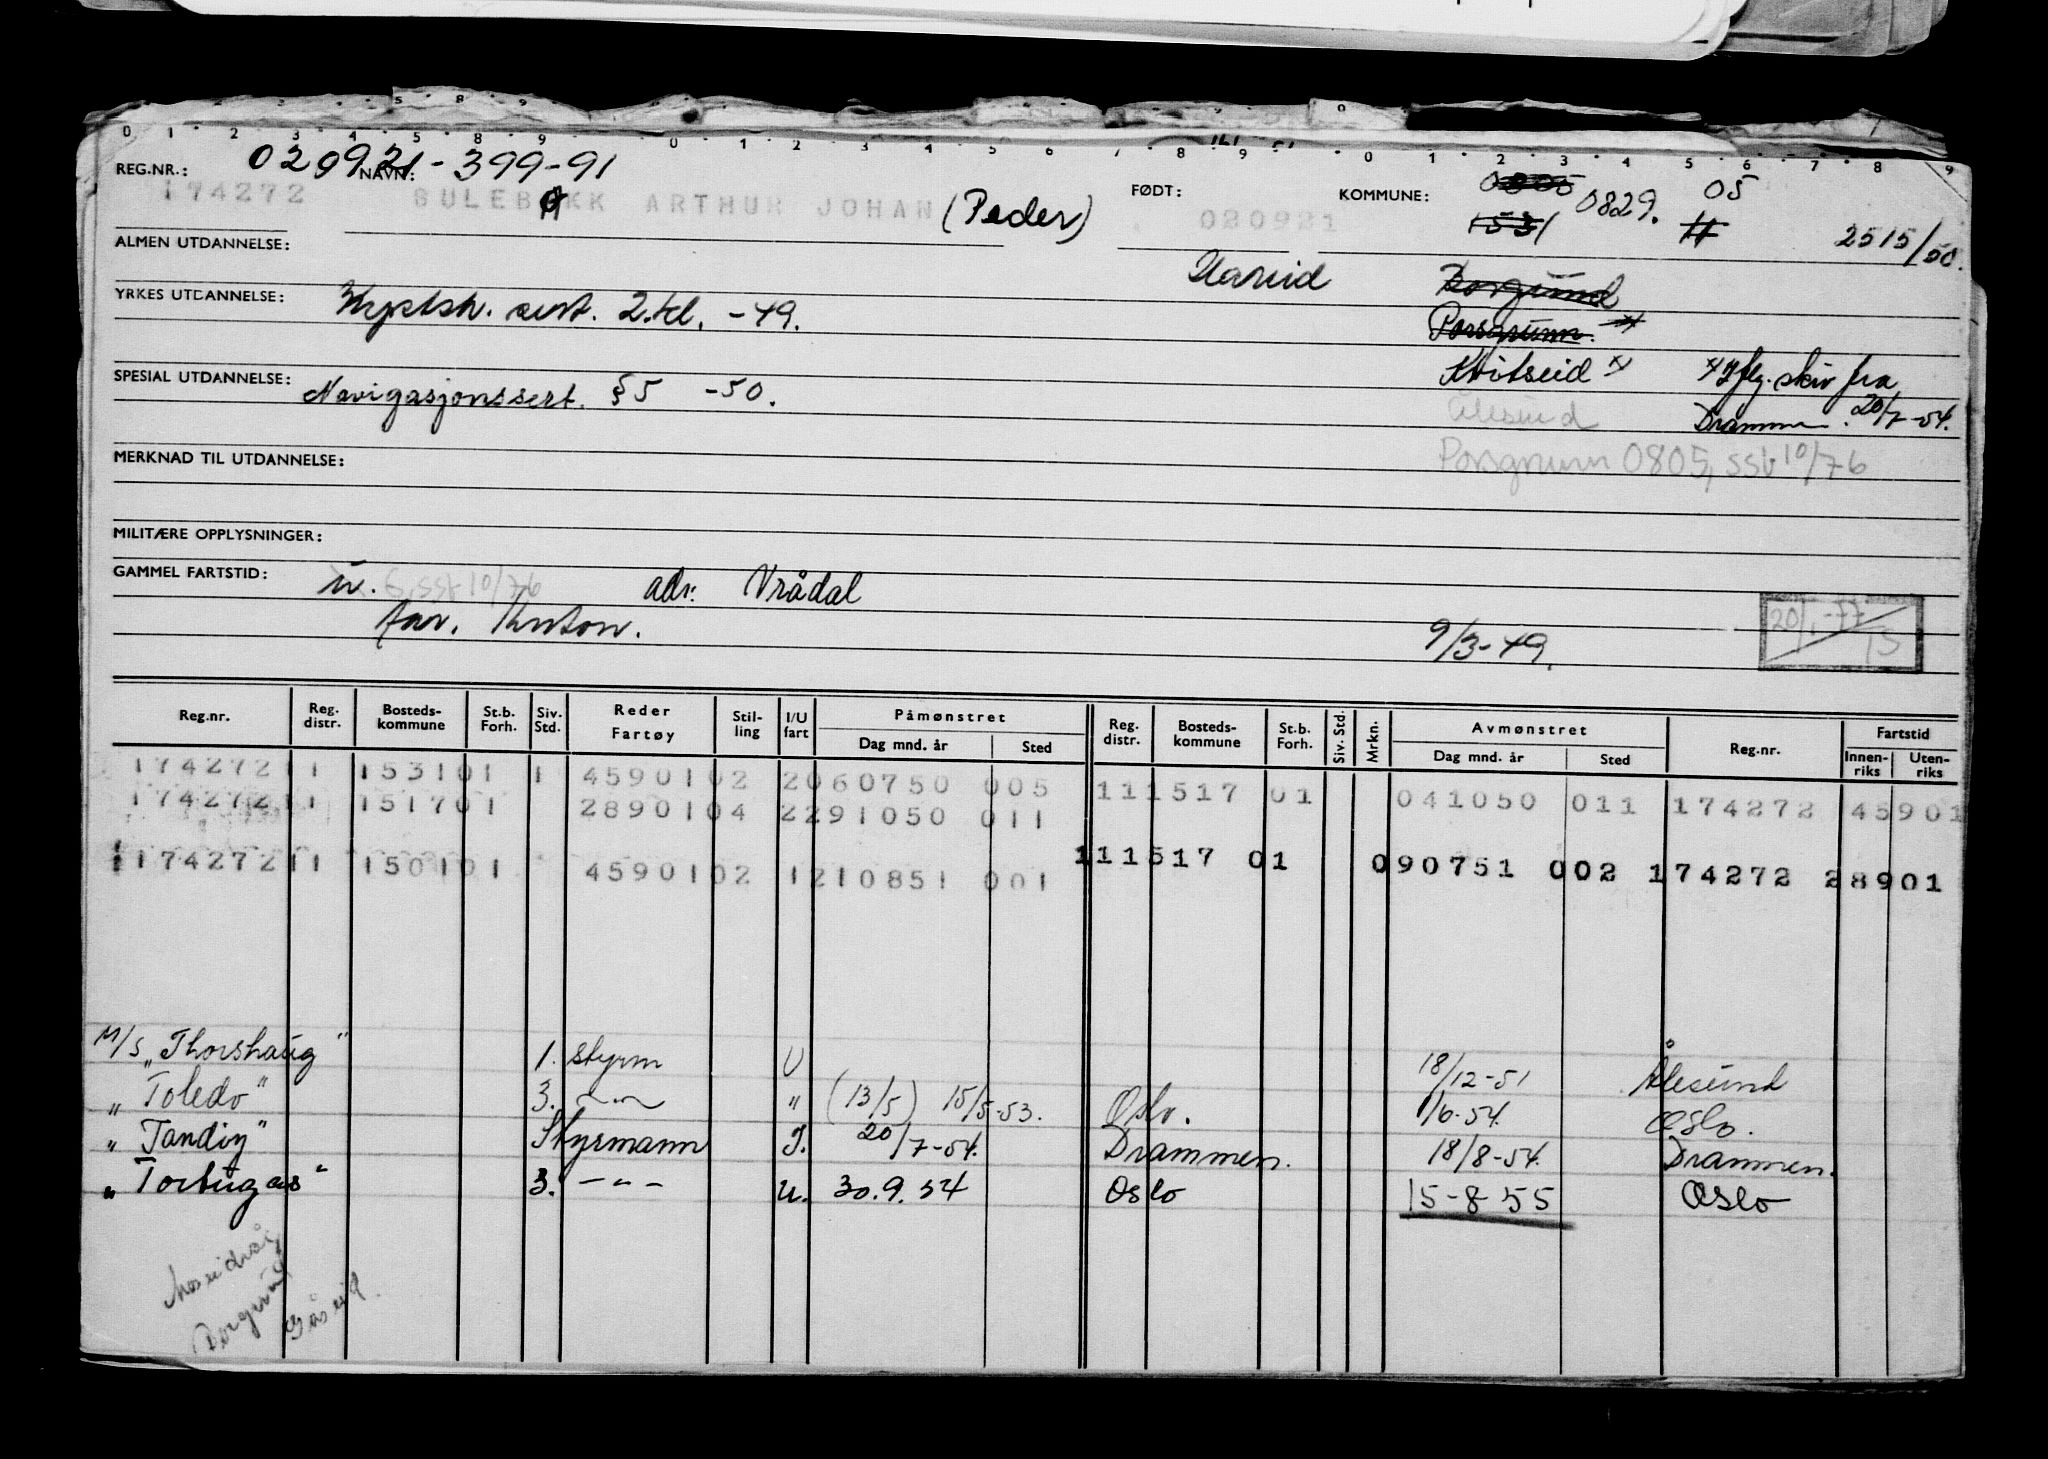 0 1 2 3 4 5 8 9 0 1 2 3 4 5 6 7 8 9 0 1 2 3 4 5 6 7 8 9
REG.NR.: 020921-399-91 NAVN: FØDT: KOMMUNE: 0829. 05
174272 SULEBAKK ARTHUR JOHAN (Peder) 020921 1531 11 2515/50.
ALMEN UTDANNELSE:
Hareid Borgund
YRKES UTDANNELSE: Kystsk. sert. 2.kl. -49.
Porsgrunn x
Kviteseid x x Iflg. skiv fra
SPESIAL UTDANNELSE: Navigasjonssert. §5 -50.
Ålesund Drammen. 20/7-54.
MERKNAD TIL UTDANNELSE: Porsgrunn 0805, sst 10/76
MILITÆRE OPPLYSNINGER:
GAMMEL FARTSTID: sst 10/76 adr. Vrådal
20/1-77
9/3-49.
Reg.nr. Reg. distr. Bosteds-kommune St.b. Forh. Siv. Std. Reder Fartøy Stil-ling I/U fart Påmønstret Dag mnd. år Sted Reg. distr. Bosteds-kommune St.b. Forh. Siv. Std. Mrkn. Avmønstret Dag mnd. år Sted Reg.nr. Fartstid Innen-riks Uten-riks
174272 11 1531 01 1 45901 02 2 060750 005 11 1517 01 041050 011 174272 45901
174272 11 1517 01 28901 04 2 291050 011
174272 11 1501 01 45901 02 1 210851 001 11 1517 01 090751 002 174272 28901
M/S „Thorshaug" 1. styrm U 18/12-51 Ålesund
„Toledo" 3. —"— " (13/5) 15/5-53. Oslo. 1/6-54. Oslo.
„Tandiy" Styrmann I. 20/7-54. Drammen. 18/8-54. Drammen.
„Tortugas" 3. —"— u. 30.9.54 Oslo 15-8-55 Oslo
Borgund